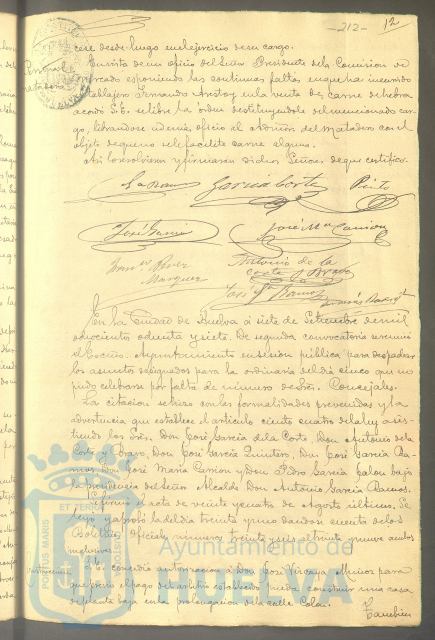 -212-
12
cese desde luego en el ejercicio de su cargo.
En vista de un oficio del Señor Presidente de la Comision de
mercado esponiendo las continuas faltas en que ha incurrido
Fernando en la venta de carne de hebra
acordó S.E. se libre la orden destituyendole del mencionado car-
go, librandose ademas oficio al del matadero con el
objeto de que no se le facilite carne alguna.
Asi lo resolvieron y firmaron dichos Señores de que certifico.
García Corte
Pinto
José García
José Mª Carrion
Perez
Marquez
Antonio de la
Corte y Bravo
José Gª Ramos
En la Ciudad de Huelva á siete de Setiembre de mil
ochocientos ochenta y siete. De segunda convocatoria se reunió
el Excmo. Ayuntamiento en sesion pública para despachar
los asuntos designados para la ordinaria del dia cinco que no
pudo celebrarse por falta de número de Sres. Concejales.
La citacion se hizo con las formalidades prevenidas y la
advertencia que establece el artículo ciento cuatro de la ley asis-
tiendo los Sres. Don José García de la Corte, Don Antonio de la
Corte y Bravo, Don José García Quintero, Don José García Ra-
mos, Don José María Carrion y Don Pedro García Jalon bajo
la presidencia del Señor Alcalde Don Antonio García Ramos.
acta de veinte y cuatro de Agosto último. Se
leyó y aprobó la del dia treinta y uno dandose cuenta de los
Boletines Oficiales números treinta y seis al treinta y nueve ambos
inclusives.
Se concedió autorizacion á Don José Vizcaino Muñoz para
que previo el pago del arbitrio establecido pueda construir una casa
de planta baja en la prolongacion de la calle Colon.
Tambien
Ayuntamiento de
HUELVA
PORTUS MARIS
ET TERRÆ
CUSTODIA